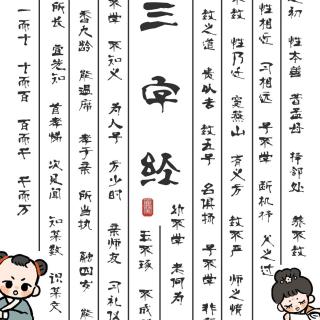 之初 性本善 昔孟母 择邻处 养不教
性相近 习相远 子不学 断机杼 父之过
不教 性乃迁 窦燕山 有义方 教不严 师之惰
教之道 贵以专 教五子 名俱扬 子不学 非
三字经
幼不学 老何为
玉不琢 不成
不学 不知义 为人子 方少时 亲师友 习礼仪
香九龄 能温席 孝于亲 所当执 融四岁 能
所长 宜先知 首孝悌 次见闻 知某数 识某文
一而十 十而百 百而千 千而万